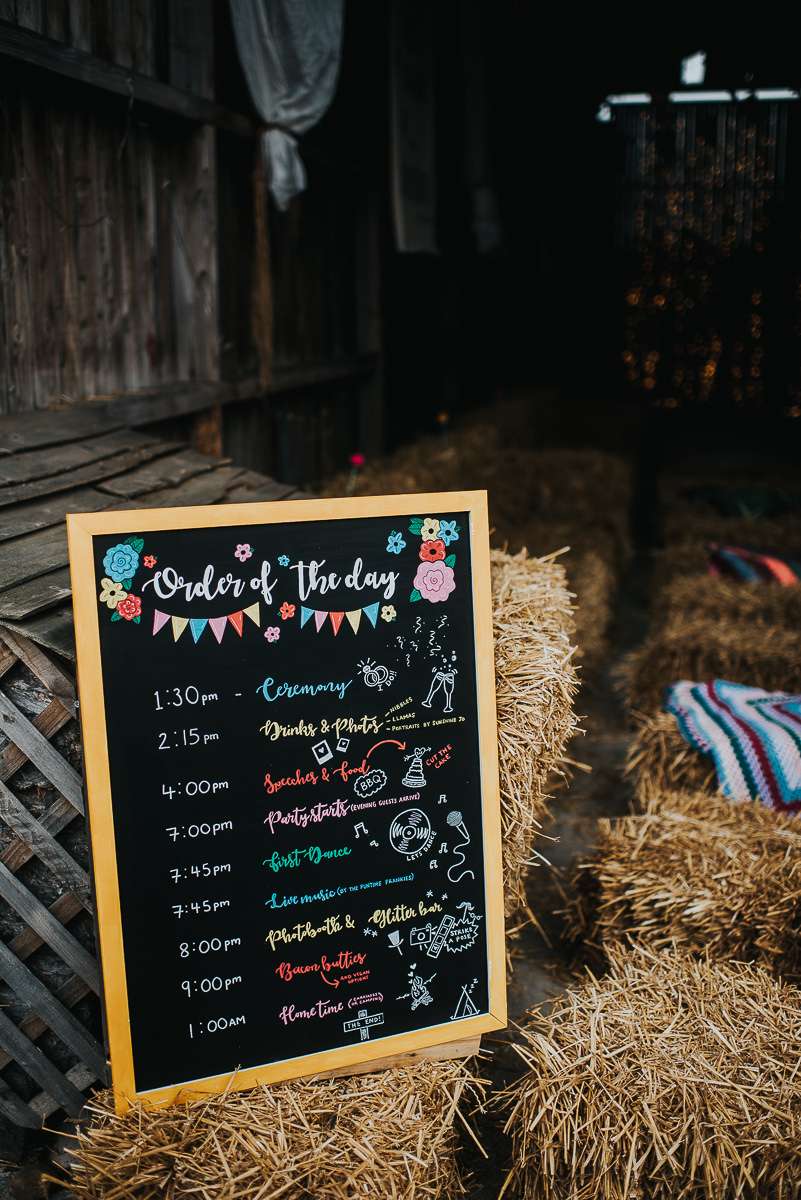 Order of the day
1:30pm - Ceremony
I DO!
2:15pm Drinks & Photos
- NIBBLES
- LLAMAS
- PORTRAITS BY SUNSHINE JO
4:00pm Speeches & food
BBQ
CUT THE CAKE
7:00pm Party starts (EVENING GUESTS ARRIVE)
7:45pm First Dance
LETS DANCE
7:45pm Live music (BY THE FUNTIME FRANKIES)
8:00pm Photobooth & Glitter bar
STRIKE A POSE
9:00pm Bacon butties
AND VEGAN OPTION!
1:00AM Home time (CARRIAGES OR CAMPING)
THE END!
z z z